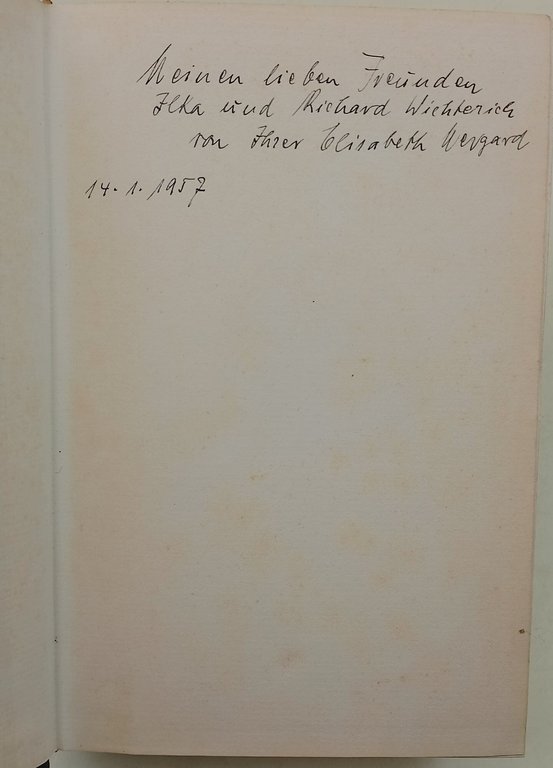 Meinen lieben Freunden
Ilka und Richard Wichterich
von Ihrer Elisabeth Wergard
14. 1. 1957